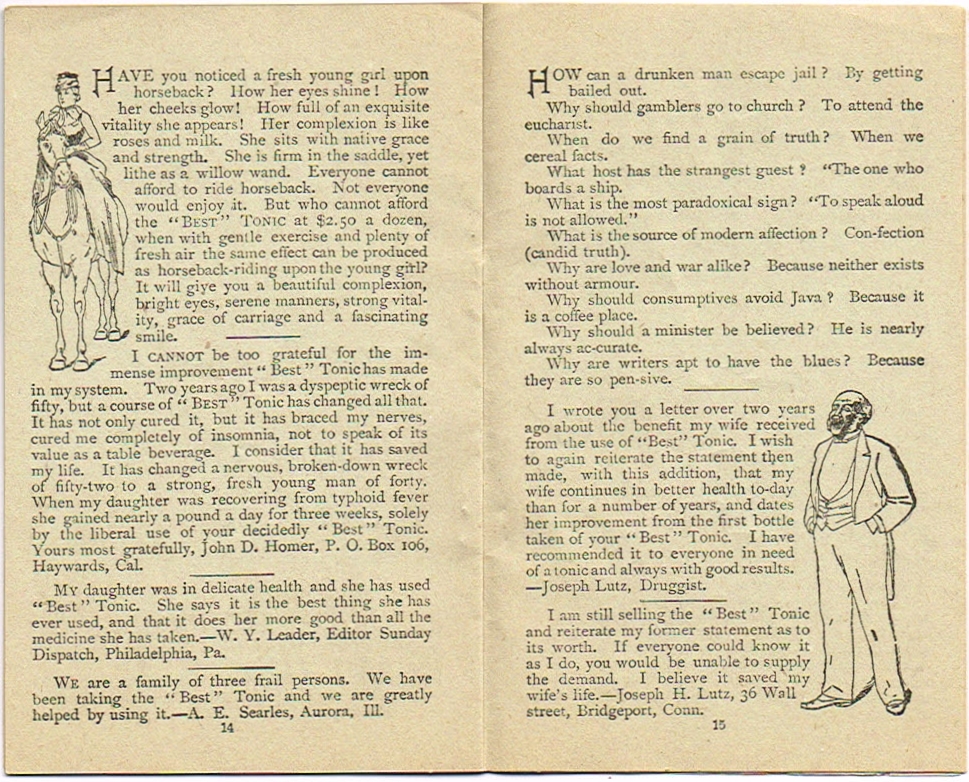 HAVE you noticed a fresh young girl upon
horseback? How her eyes shine! How
her cheeks glow! How full of an exquisite
vitality she appears! Her complexion is like
roses and milk. She sits with native grace
and strength. She is firm in the saddle, yet
lithe as a willow wand. Everyone cannot
afford to ride horseback. Not everyone
would enjoy it. But who cannot afford
the "BEST" TONIC at $2.50 a dozen,
when with gentle exercise and plenty of
fresh air the same effect can be produced
as horseback-riding upon the young girl?
It will give you a beautiful complexion,
bright eyes, serene manners, strong vital-
ity, grace of carriage and a fascinating
smile.
I CANNOT be too grateful for the im-
mense improvement "Best" Tonic has made
in my system. Two years ago I was a dyspeptic wreck of
fifty, but a course of "BEST" Tonic has changed all that.
It has not only cured it, but it has braced my nerves,
cured me completely of insomnia, not to speak of its
value as a table beverage. I consider that it has saved
my life. It has changed a nervous, broken-down wreck
of fifty-two to a strong, fresh young man of forty.
When my daughter was recovering from typhoid fever
she gained nearly a pound a day for three weeks, solely
by the liberal use of your decidedly "Best" Tonic.
Yours most gratefully, John D. Homer, P. O. Box 106,
Haywards, Cal.
MY daughter was in delicate health and she has used
"Best" Tonic. She says it is the best thing she has
ever used, and that it does her more good than all the
medicine she has taken.—W. Y. Leader, Editor Sunday
Dispatch, Philadelphia, Pa.
WE are a family of three frail persons. We have
been taking the "Best" Tonic and we are greatly
helped by using it.—A. E. Searles, Aurora, Ill.
14
HOW can a drunken man escape jail? By getting
bailed out.
Why should gamblers go to church? To attend the
eucharist.
When do we find a grain of truth? When we
cereal facts.
What host has the strangest guest? "The one who
boards a ship.
What is the most paradoxical sign? "To speak aloud
is not allowed."
What is the source of modern affection? Con-fection
(candid truth).
Why are love and war alike? Because neither exists
without armour.
Why should consumptives avoid Java? Because it
is a coffee place.
Why should a minister be believed? He is nearly
always ac-curate.
Why are writers apt to have the blues? Because
they are so pen-sive.
I wrote you a letter over two years
ago about the benefit my wife received
from the use of "Best" Tonic. I wish
to again reiterate the statement then
made, with this addition, that my
wife continues in better health to-day
than for a number of years, and dates
her improvement from the first bottle
taken of your "Best" Tonic. I have
recommended it to everyone in need
of a tonic and always with good results.
—Joseph Lutz, Druggist.
I am still selling the "Best" Tonic
and reiterate my former statement as to
its worth. If everyone could know it
as I do, you would be unable to supply
the demand. I believe it saved my
wife's life.—Joseph H. Lutz, 36 Wall
street, Bridgeport, Conn.
15